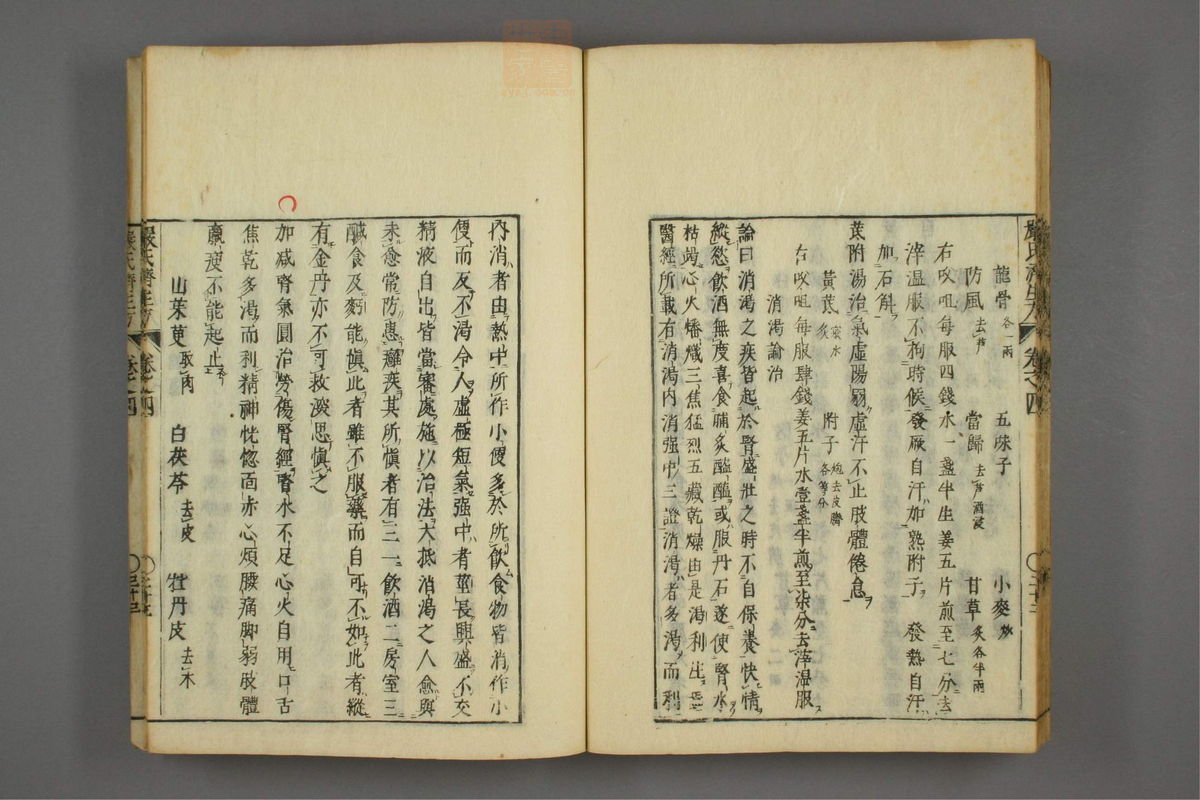 龍骨各一兩 五味子 小麥炒
防風去芦 當歸去芦酒浸 甘草炙各半兩
右㕮咀每服四錢水一盞半生姜五片煎至七分去
滓温服不拘時候發厥自汗加熟附子發熱自汗
加石斛
芪附湯治氣虛陽弱虛汗不止肢體倦怠
黃芪蜜水炙 附子炮去皮臍各等分
右㕮咀每服肆錢姜五片水壹盞半煎至柒分去滓温服
消渴論治
論曰消渴之疾皆起於腎盛壯之時不自保養快情
縱慾飲酒無度喜食脯炙醯醢或服丹石遂使腎水
枯竭心火燔熾三焦猛烈五藏乾燥由是渴利生焉
醫經所載有消渴内消强中三證消渴者多渴而利
内消者由熱中所作小便多於所飲食物皆消作小
便而反不渴令人虛極短氣强中者莖長興盛不交
精液自出皆當審處施以治法大抵消渴之人愈與
未愈常防患癰疾其所愼者有三一飲酒二房室三
鹹食及麪能愼此者雖不服藥而自可不如此者縱
有金丹亦不可救深思愼之
加减腎氣圓治勞傷腎經腎水不足心火自用口舌
焦乾多渴而利精神恍惚面赤心煩腰痛脚弱肢體
羸瘦不能起止
山茱萸取肉 白茯苓去皮 牡丹皮去木
嚴氏濟生方 卷之四